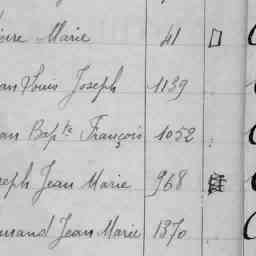 oire Marie 41
an Louis Joseph 1139
an Bapte François 1052
seph Jean Marie 968
mand Jean Marie 1370